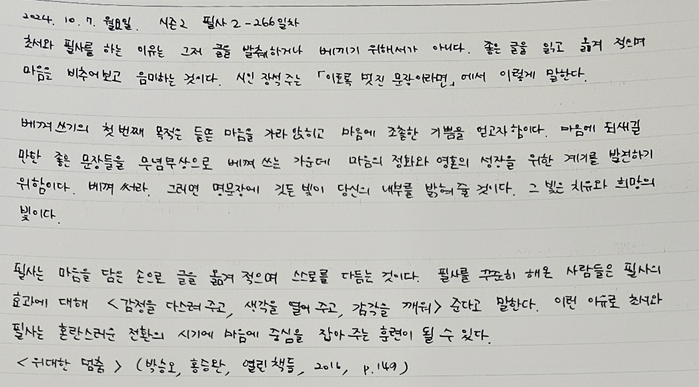 2024. 10. 7. 월요일. 시즌2 필사 2-266일차
초서와 필사를 하는 이유는 그저 글을 발췌하거나 베끼기 위해서가 아니다. 좋은 글을 읽고 옮겨 적으며
마음을 비추어보고 음미하는 것이다. 시인 장석주는 「이토록 멋진 문장이라면」에서 이렇게 말한다.
베껴쓰기의 첫 번째 목적은 들뜬 마음을 가라 앉히고 마음에 조촐한 기쁨을 얻고자함이다. 마음에 되새길
만한 좋은 문장들을 무념무상으로 베껴 쓰는 가운데 마음의 정화와 영혼의 성장을 위한 계기를 발견하기
위함이다. 베껴 써라. 그러면 명문장에 깃든 빛이 당신의 내부를 밝혀 줄 것이다. 그 빛은 치유와 희망의
빛이다.
필사는 마음을 담은 손으로 글을 옮겨 적으며 스스로를 다듬는 것이다. 필사를 꾸준히 해온 사람들은 필사의
효과에 대해 <감정을 다스려 주고, 생각을 열어 주고, 감각을 깨워> 준다고 말한다. 이런 이유로 초서와
필사는 혼란스러운 전환의 시기에 마음에 중심을 잡아 주는 훈련이 될 수 있다.
<위대한 멈춤> (박승오, 홍승완, 열린책들, 2016, p.149)